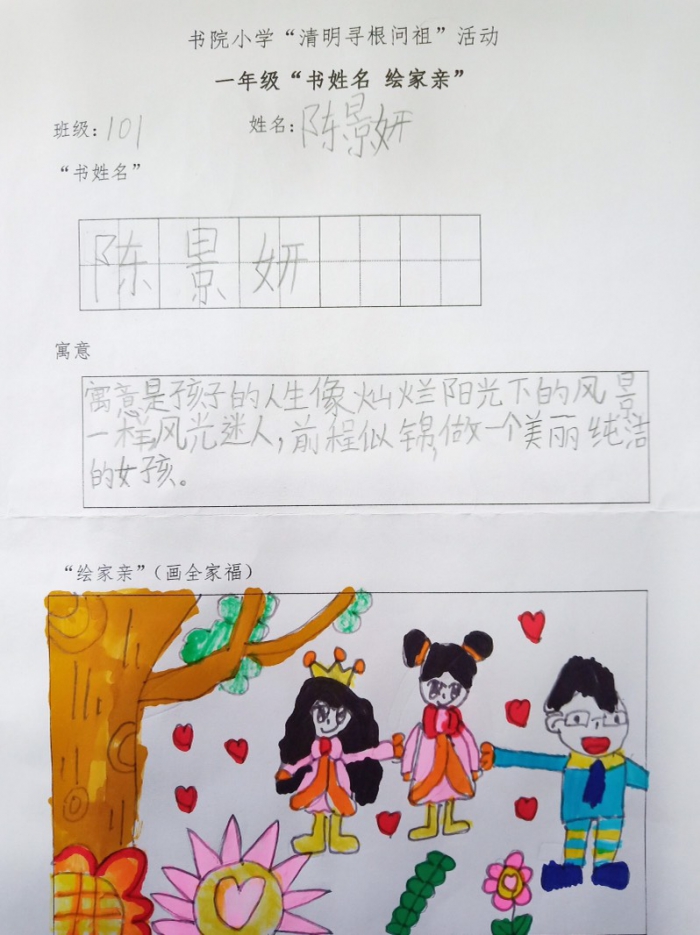 书院小学“清明寻根问祖”活动
一年级“书姓名 绘家亲”
班级：101 姓名：陈景妍
“书姓名”
陈景妍
寓意
寓意是孩子的人生像灿烂阳光下的风景
一样,风光迷人,前程似锦,做一个美丽纯洁
的女孩。
“绘家亲”（画全家福）